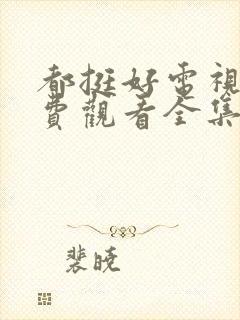 都挺好電視
費觀看全集
裴曉